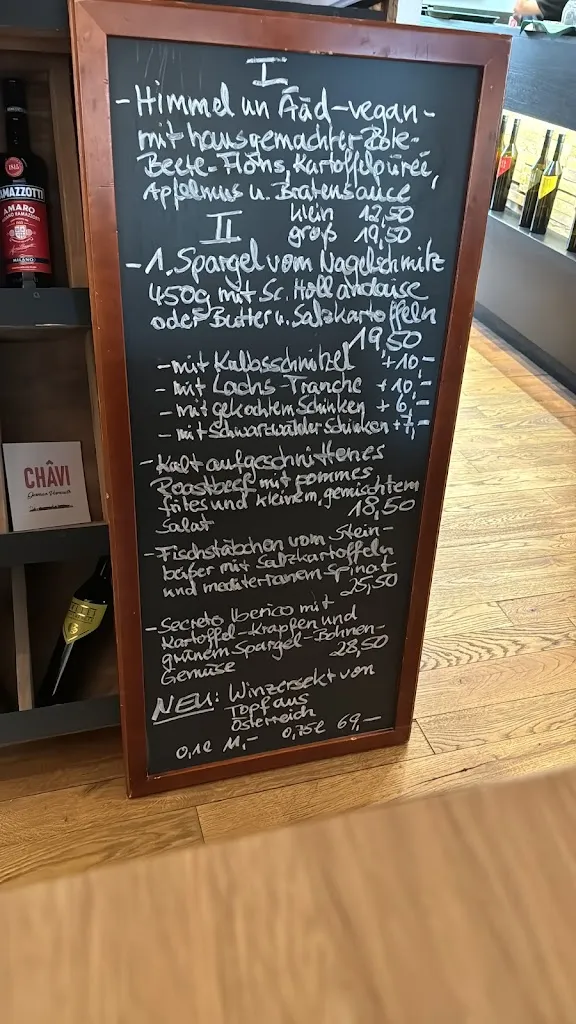 I
- Himmel un Ääd - vegan -
mit hausgemachter Rote-
Beete-Flöns, Kartoffelpüree,
Apfelmus u. Bratensauce
klein 12,50
groß 19,50
II
- 1. Spargel vom Nagelschmitz
450g mit Sc. Hollandaise
oder Butter u. Salzkartoffeln
19,50
- mit Kalbsschnitzel +10,-
- mit Lachs-Tranche +10,-
- mit gekochtem Schinken + 6,-
- mit Schwarzwälder Schinken +7,-
- Kalt aufgeschnittenes
Roastbeef mit pommes
frites und kleinem, gemischtem
Salat 18,50
- Fischstäbchen vom Stein-
beißer mit Salzkartoffeln
und mediterranem Spinat
25,50
- Secreto Iberico mit
Kartoffel-Krapfen und
grünem Spargel-Bohnen-
Gemüse 28,50
NEU: Winzersekt von
Topf aus
Österreich
0,1l 11,- 0,75l 69,-
RAMAZZOTTI
AMARO
MILANO
CHÂVI